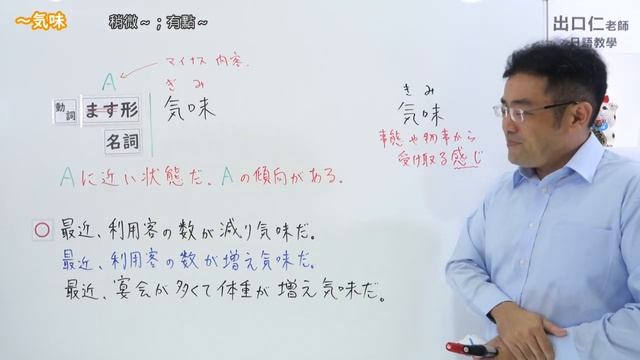 ～気味
稍微～；有點～
出口仁老師
日語教學
A
マイナス内容
動詞
ます形
名詞
ぎみ
気味
きみ
気味
事態や物事から
受け取る感じ
Aに近い状態だ、Aの傾向がある。
○ 最近、利用客の数が減り気味だ。
最近、利用客の数が増え気味だ。
最近、宴会が多くて体重が増え気味だ。